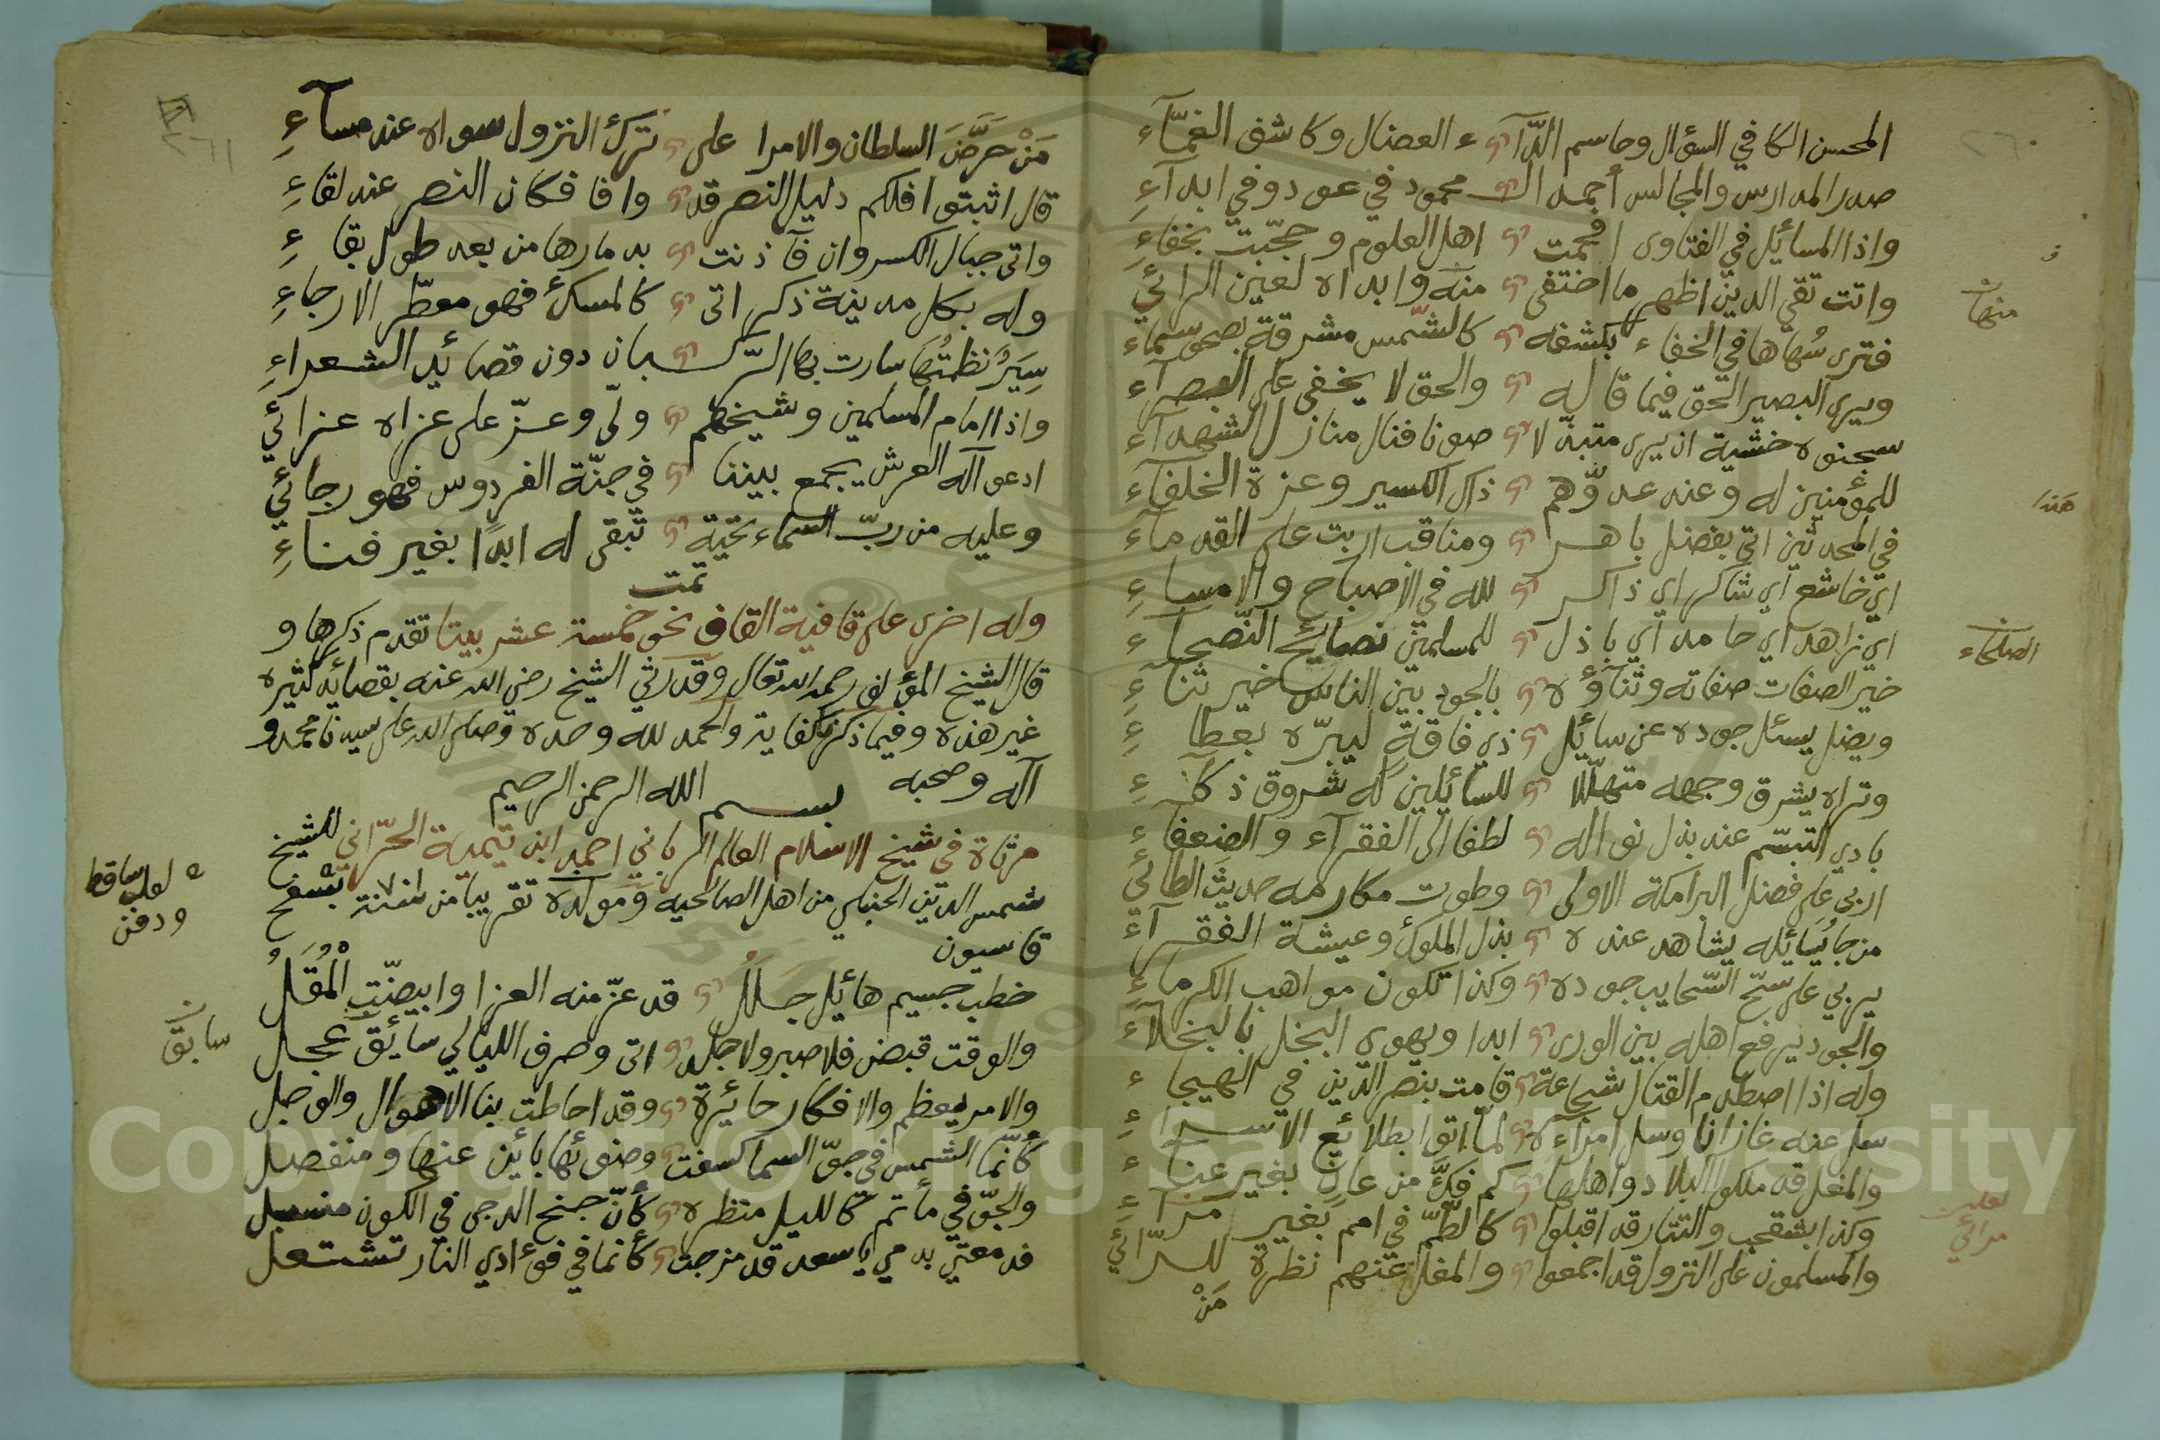 المحسن الكافي السؤال وحاسم الدآء العضال وكاشف الغمّآء
صدر المدارس والمجالس أحمد الـ محمود في عود وفي ابدآءِ
واذا المسائل في الفتاوى افحمت اهل العلوم وحجّبت بخفاءِ
واتت تقي الدين اظهر ما اختفى منه وابداه لعين الرائي
فترى سُهاها في الخفاء بكشفه كالشمس مشرقة بصحو سماء
ويرى البصير الحق فيما قاله والحق لا يخفى على البصرآء
سجنوه خشية ان يرى متبذّلا صونا فنال منازل الشهدآء
للمؤمنين له وعند عدوّهم ذاك الكسير وعزة الخلفآء
في المحدثين اتى بفضل باهر ومناقب اربت على القدمآء
اي خاشع اي شاكر اي ذاكر لله في الاصباح والامساءِ
اي زاهد اي حامد اي باذل للمسلمين نصائح النّصحآء
خير الصفات صفاته وثناؤه بالجود بين الناس خير ثناءِ
ويضل يسئل جوده عن سائل ذي فاقة ليبرّه بعطاءِ
وتراه يشرق وجهه متهلّلا للسائلين له شروق ذكآءِ
بادي التبسّم عند بذل نواله لطفا الى الفقرآء والضعفاء
اربى على فضل البرامكة الاولى وطوت مكارمه حديث الطائي
من جا يسائله يشاهد عنده بذل الملوك وعيشة الفقرآء
يربي على سحّ السّحايب جوده وكذا تكون مواهب الكرماءِ
والجود يرفع اهله بين الورى ابدا ويهوي البخل بالبخلآء
وله اذا اصطدم القتال شجاعة قامت بنصر الدّين في الهيجاء
سل عنه غازانا وسل امرآءه لمّا اتوا بطلائع الاسراءِ
والمغل قد ملكوا البلاد واهلها كم فكّ من عانٍ بغير عناء
وكذا بشقحب والتتار قد اقبلوا كالطّمّ في امم بغير مرآءِ
والمسلمون على النزول قد اجمعوا والمغل عنهم نظرة للرّائي
مَنْ
منهاٮ
هَذا
الصلحاء
لعله
مرائي
مَنْ حَرَّضَ السلطان والامرا على ترك النزول سواه عند مسآءِ
قال اثبتوا فلكم دليل النصر قد وافا فكان النصر عند لقاءِ
واتى جبال الكسروان فآذنت بدمارها من بعد طول بقاءِ
وله بكل مدينة ذكر اتى كالمسك فهو معطّر الارجاءِ
سِيَرٌ نظمتُها سارت بها الرّكبان دون قصائد الشعراءِ
واذا امام المسلمين وشيخهم ولّى وعزّ على عزاه عزائي
ادعو آله العرش يجمع بيننا في جنّة الفردوس فهو رجائي
وعليه من ربّ السماء تحية تبقى له ابدًا بغير فناءِ
تمت
وله اخرى على قافية القاف نحو خمسة عشر بيتا تقدم ذكرها و
قال الشيخ المؤلف رحمه الله تعالى وقد رثي الشيخ رضي الله عنه بقصائد كثيره
غير هذه وفيما ذكر كفاية والحمد لله وحده وصلى الله على سيدنا محمد و
آله وصحبه بسم الله الرحمن الرحيم
مرثاة في شيخ الاسلام العالم الرباني احمد ابن تيمية الحرّاني للشيخ
شمس الدين الحنبلي من اهل الصالحيه ومولده تقريبا من بسفح
قاسيون
خطب جسيم هائل جلل قد عزّ منه العزا وابيضّت الْمُقَلُ
والوقت قبض فلا صبر ولا جلد اتى وصرف الليالي سائق عجل
والامر يعظم والافكار حائرة وقد احاطت بنا الاهوال والوجل
كأنّما الشمس في جوّ السما كسفت وضوئها بائن عنها ومنفصل
والجوّ في مأتم كالليل منظره كأنّ جنح الدجى في الكون منسبل
فدمعتي بدمي يا سعد قد مزجت كأنما في فؤادي النار تشتعل
لعله ساقط
ودفن
سابق